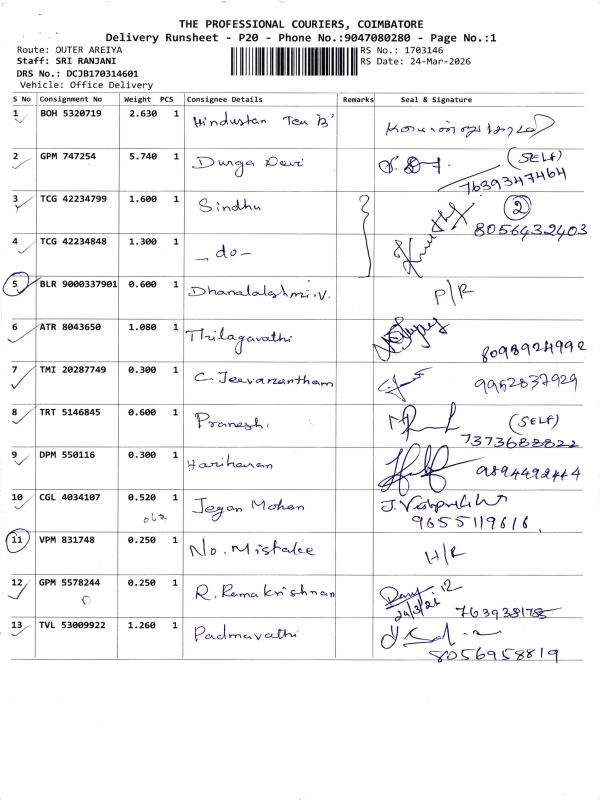 THE PROFESSIONAL COURIERS, COIMBATORE
Delivery Runsheet - P20 - Phone No.:9047080280 - Page No.:1
Route: OUTER AREIYA RS No.: 1703146
Staff: SRI RANJANI RS Date: 24-Mar-2026
DRS No.: DCJB170314601
Vehicle: Office Delivery
S No Consignment No Weight PCS Consignee Details Remarks Seal & Signature
1 BOH 5320719 2.630 1 Hindustan Tea 'B'
2 GPM 747254 5.740 1 Durga Devi (SELF)
7639347464
3 TCG 42234799 1.600 1 Sindhu 2
8056432403
4 TCG 42234848 1.300 1 - do -
5 BLR 9000337901 0.600 1 Dhanalalshmi.V. P/R
6 ATR 8043650 1.080 1 Thilagavathi
8098924992
7 TMI 20287749 0.300 1 C. Jeevanantham 9952837929
8 TRT 5146845 0.600 1 Pranesh. (SELF)
7373688822
9 DPM 550116 0.300 1 Hariharan 9894492444
10 CGL 4034107 0.520 1 Jegan Mohen
9655119616
11 VPM 831748 0.250 1 No. Mistake H/R
12 GPM 5578244 0.250 1 R. Ramakrishnan
24/3/26
13 TVL 53009922 1.260 1 Padmavathi
8056958819